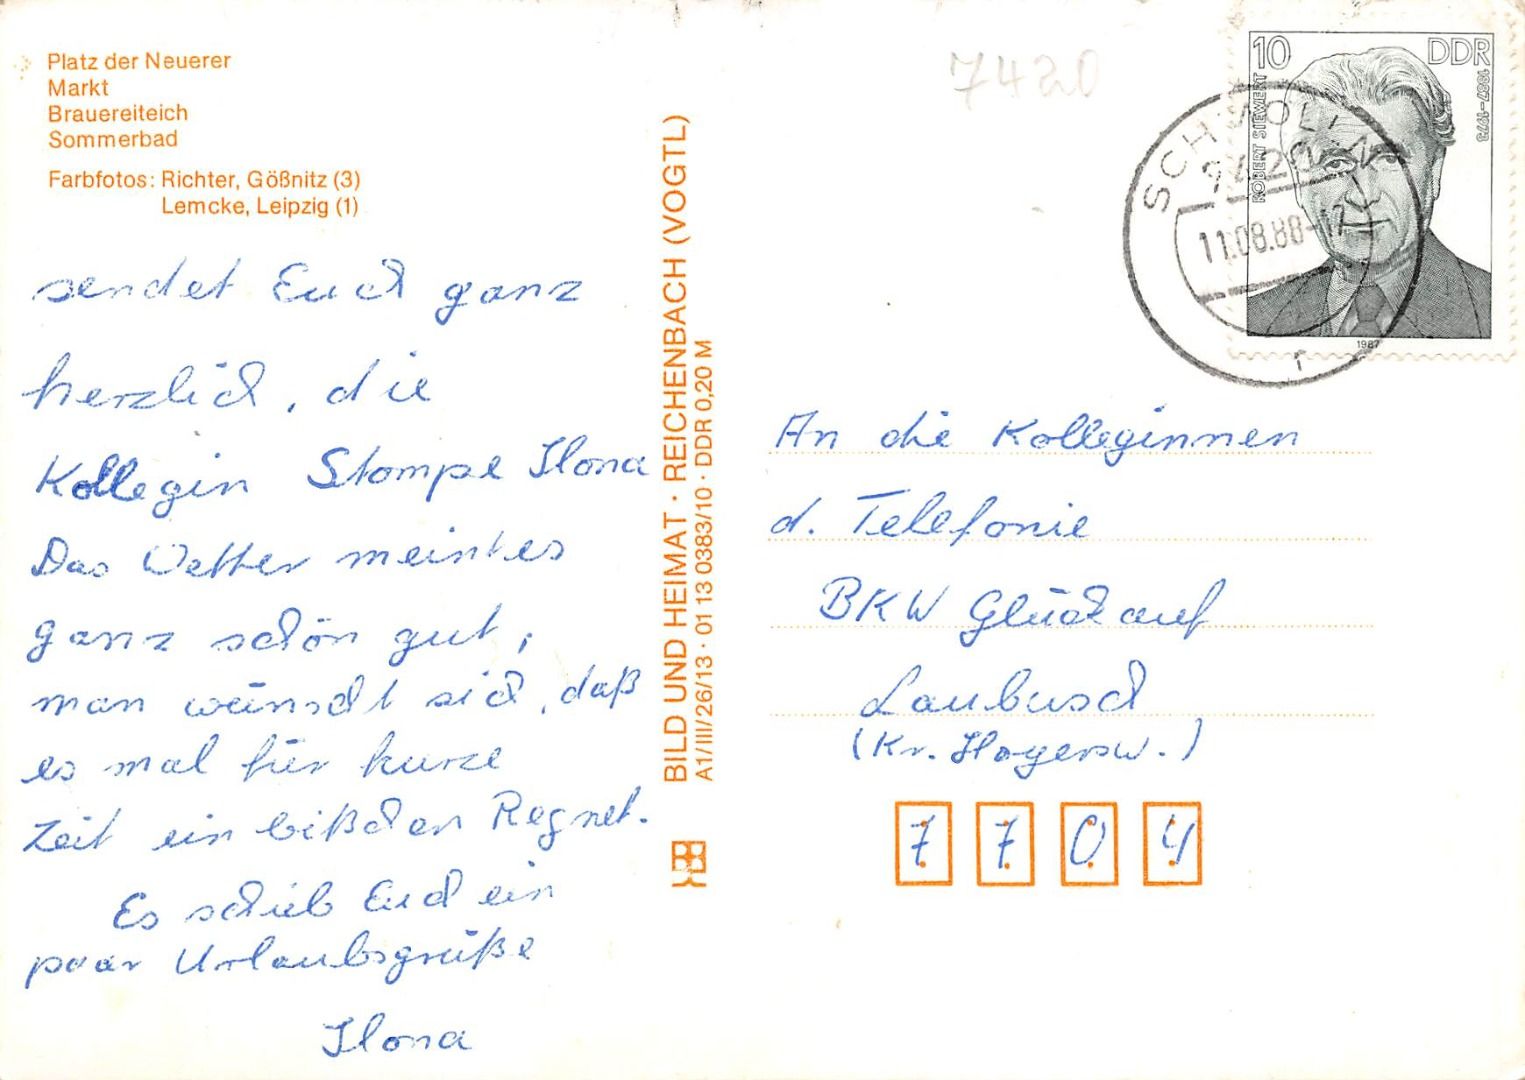 Platz der Neuerer
Markt
Brauereiteich
Sommerbad
Farbfotos: Richter, Gößnitz (3)
Lemcke, Leipzig (1)
sendet Euch ganz
herzlich, die
Kollegin Stompe Ilona
Das Wetter meint es
ganz schön gut,
man wünscht sich, daß
es mal für kurze
Zeit ein bißchen Regnet.
Es schieb Euch ein
paar Urlaubsgrüße
Ilona
BILD UND HEIMAT · REICHENBACH (VOGTL)
A1/III/26/13 · 01 13 0383/10 · DDR 0,20 M
7420
10 DDR
ROBERT SIEWERT
1887-1973
1987
SCHMÖLLN
7420
11.08.88-17
r
An die Kolleginnen
d. Telefonie
BKW Glückauf
Laubusch
(Kr. Hoyersw.)
7704